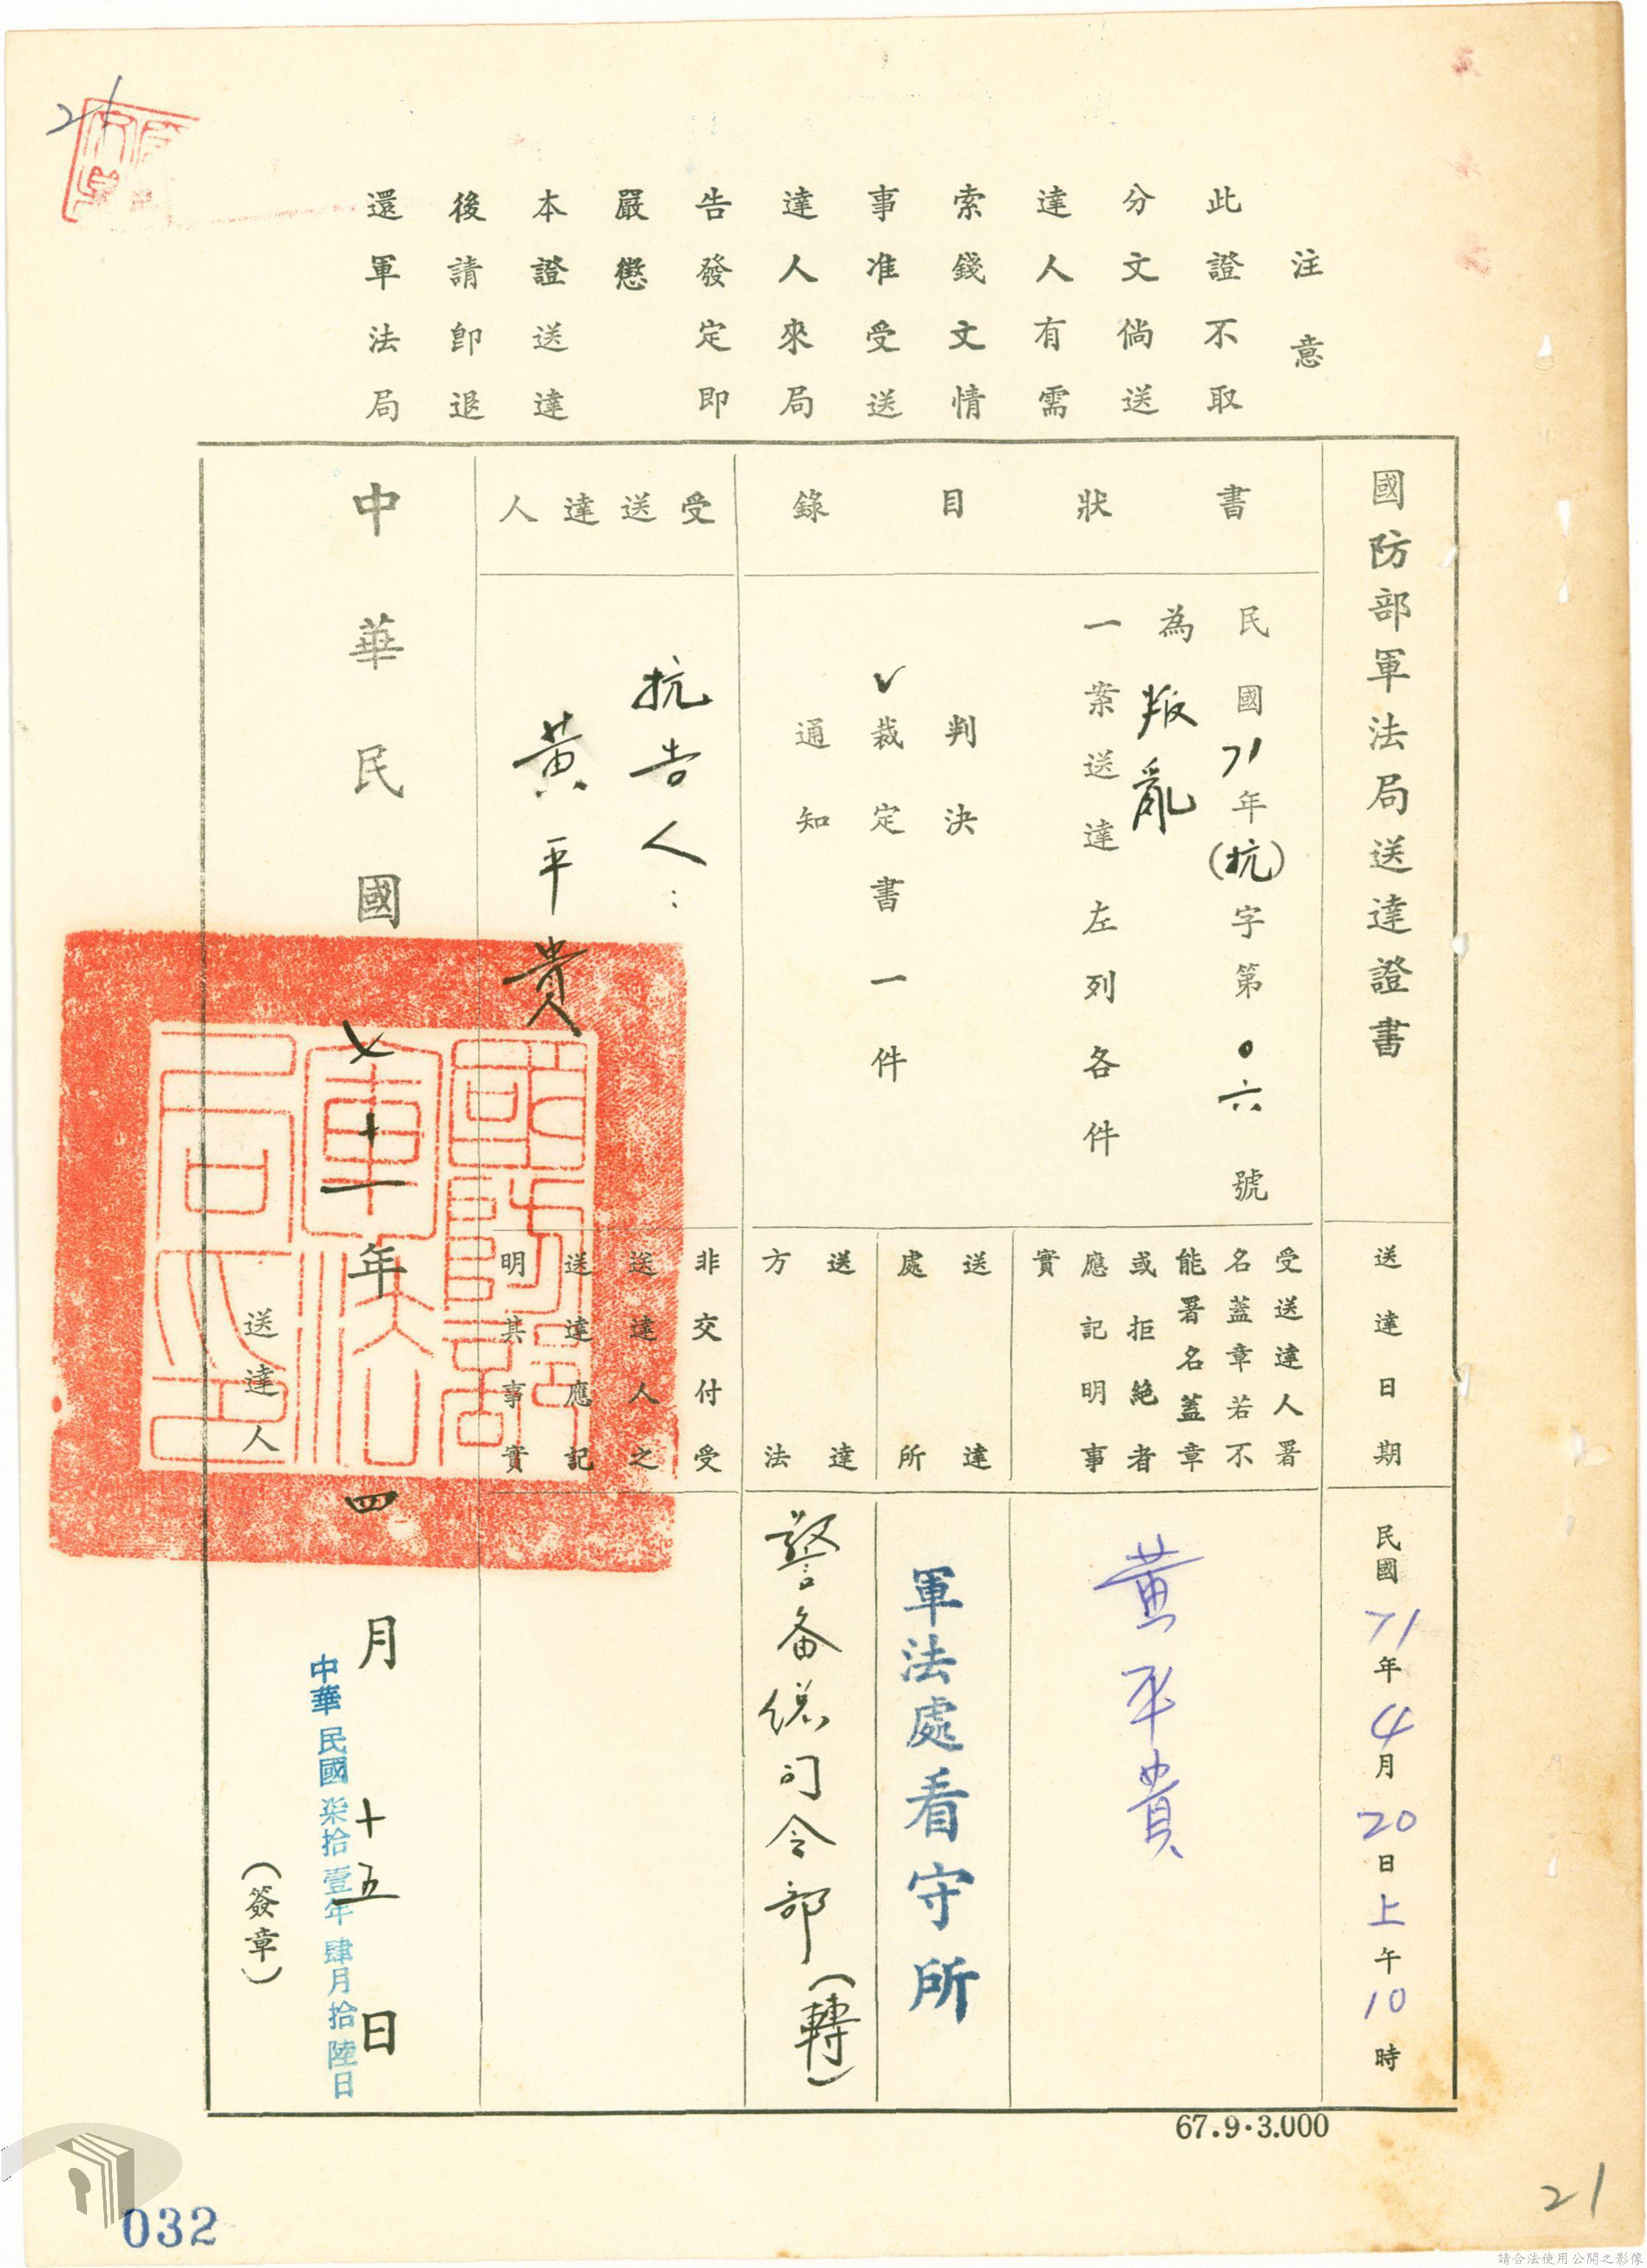 注意
此證不取
分文倘送
達人有需
索錢文情
事准受送
達人來局
告發定即
嚴懲
本證送達
後請卽退
還軍法局
國防部軍法局送達證書
送達日期
民國71年4月20日上午10時
書狀目錄
民國71年(抗)字第0六號
為叛亂
一案送達左列各件
判決
✓裁定書一件
通知
受送達人署
名蓋章若不
能署名蓋章
或拒絶者
應記明事
實
黃平貴
送達
處所
軍法處看守所
送達
方法
警备總司令部(轉)
受送達人
抗告人：
黃平貴
非交付受
送達人之
送達應記
明其事實
中華民國七十一年四月十五日
中華民國柒拾壹年肆月拾陸日
送達人
(簽章)
國防部軍法局印
67.9·3.000
21
21
032
請合法使用公開之影像